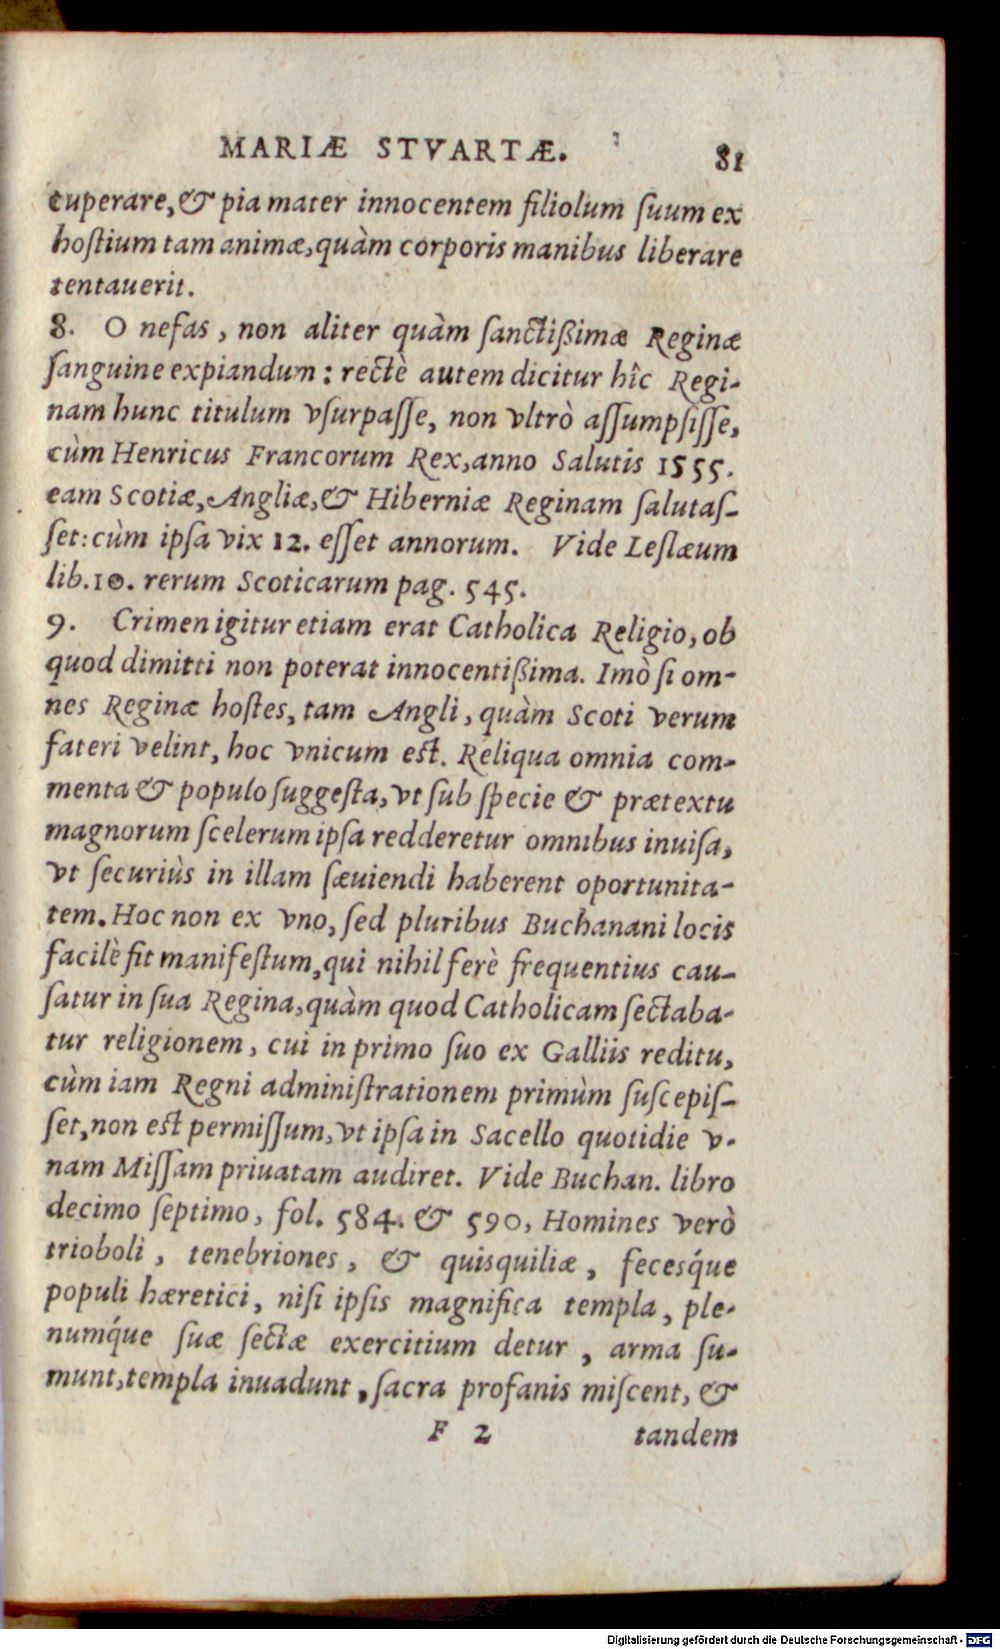 MARIÆ STVARTÆ. 81
cuperare, & pia mater innocentem filiolum ſuum ex
hoſtium tam animæ, quàm corporis manibus liberare
tentauerit.
8. O nefas, non aliter quàm ſanctißimæ Reginæ
ſanguine expiandum: rectè autem dicitur hîc Regi-
nam hunc titulum vſurpaſſe, non vltrò aſſumpſiſſe,
cùm Henricus Francorum Rex, anno Salutis 1555.
eam Scotiæ, Angliæ, & Hiberniæ Reginam ſalutaſ-
ſet: cùm ipſa vix 12. eſſet annorum. Vide Leſlæum
lib. 10. rerum Scoticarum pag. 545.
9. Crimen igitur etiam erat Catholica Religio, ob
quod dimitti non poterat innocentißima. Imò ſi om-
nes Reginæ hoſtes, tam Angli, quàm Scoti verum
fateri velint, hoc vnicum eſt. Reliqua omnia com-
menta & populo ſuggeſta, vt ſub ſpecie & prætextu
magnorum ſcelerum ipſa redderetur omnibus inuiſa,
vt ſecuriùs in illam ſæuiendi haberent oportunita-
tem. Hoc non ex vno, ſed pluribus Buchanani locis
facilè fit manifeſtum, qui nihil ferè frequentius cau-
ſatur in ſua Regina, quàm quod Catholicam ſectaba-
tur religionem, cui in primo ſuo ex Galliis reditu,
cùm iam Regni adminiſtrationem primùm ſuſcepiſ-
ſet, non eſt permiſſum, vt ipſa in Sacello quotidie v-
nam Miſſam priuatam audiret. Vide Buchan. libro
decimo ſeptimo, fol. 584. & 590, Homines verò
trioboli, tenebriones, & quisquiliæ, fecesq́ue
populi hæretici, niſi ipſis magnifica templa, ple-
numq́ue ſuæ ſectæ exercitium detur, arma ſu-
munt, templa inuadunt, ſacra profanis miſcent, &
F 2 tandem
Digitalisierung gefördert durch die Deutsche Forschungsgemeinschaft - DFG